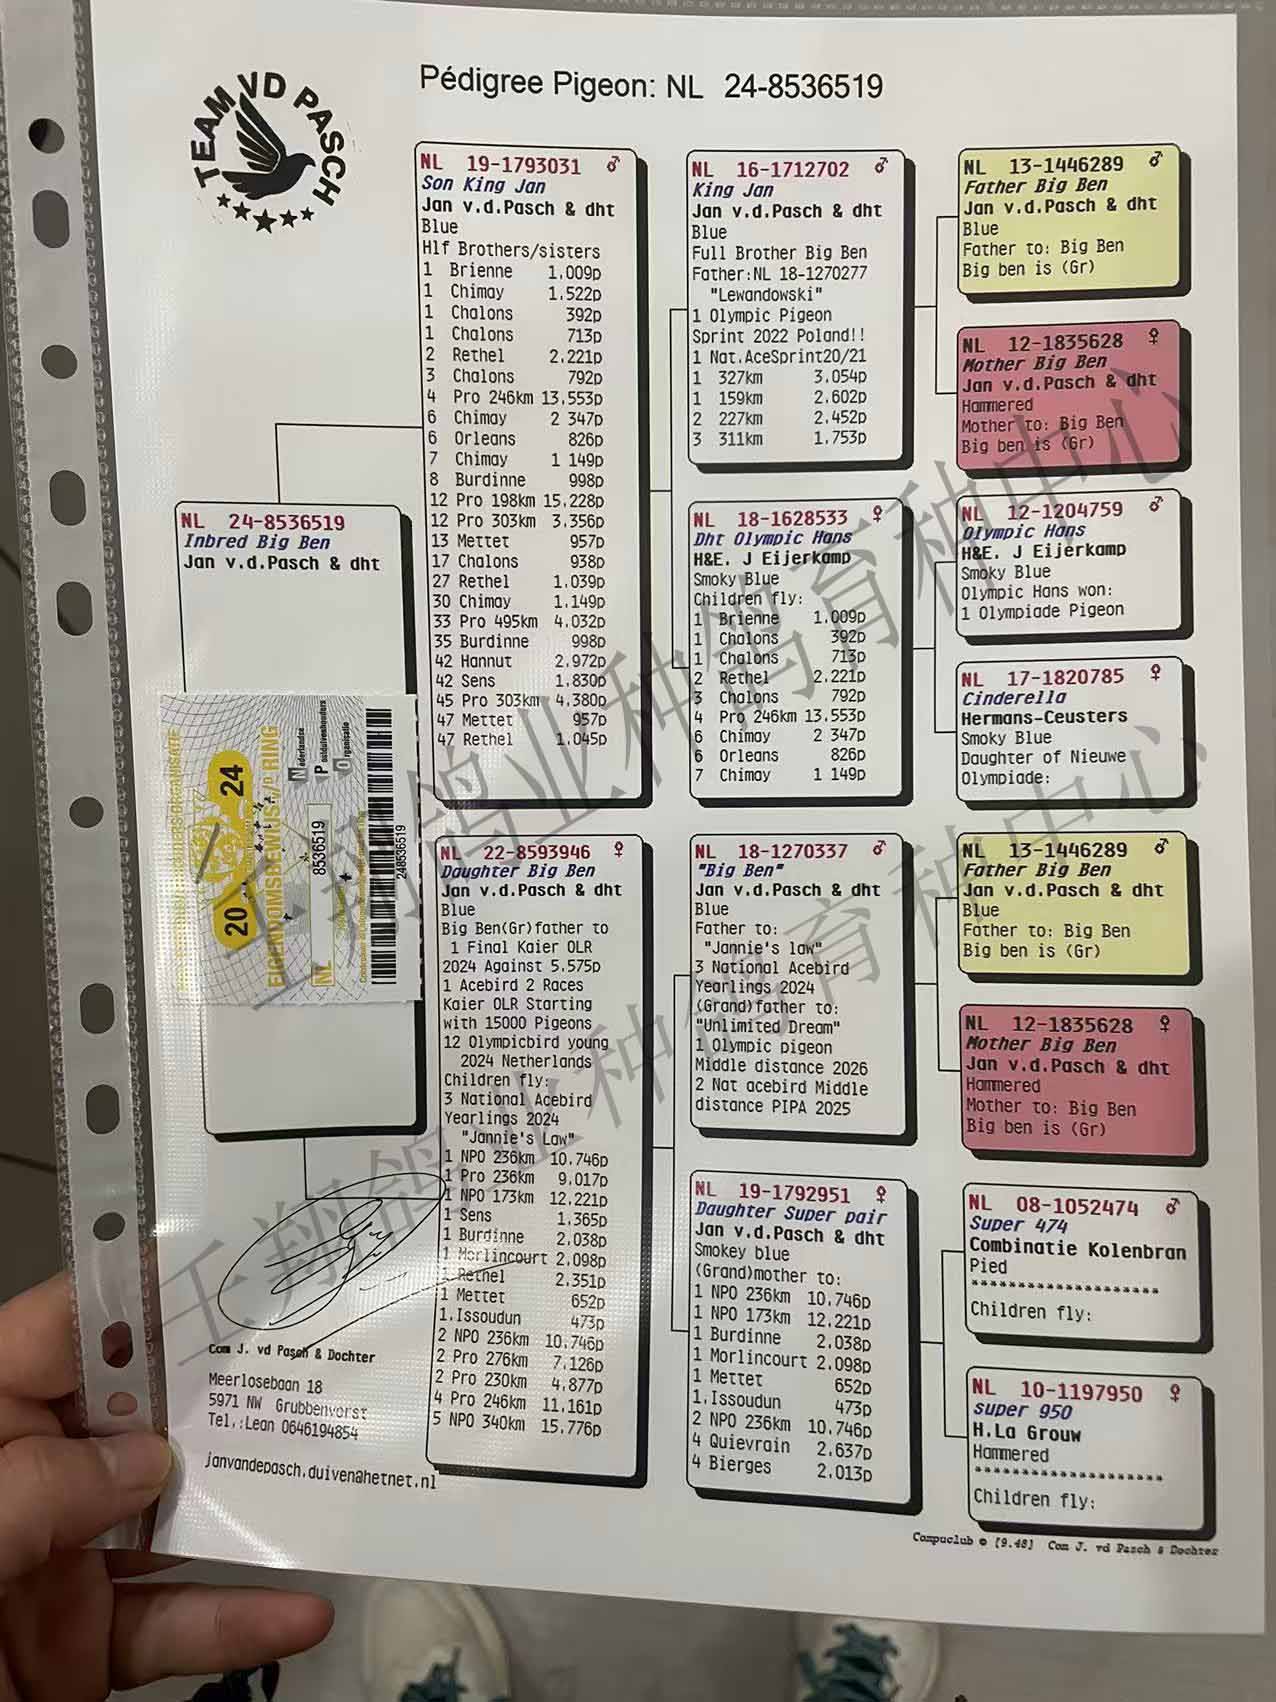 TEAM VD PASCH
Pédigree Pigeon: NL 24-8536519
NL 24-8536519
Inbred Big Ben
Jan v.d.Pasch & dht
NL 19-1793031 ♂
Son King Jan
Jan v.d.Pasch & dht
Blue
Hlf Brothers/sisters
1 Brienne 1.009p
1 Chimay 1.522p
1 Chalons 392p
1 Chalons 713p
2 Rethel 2.221p
3 Chalons 792p
4 Pro 246km 13.553p
6 Chimay 2 347p
6 Orleans 826p
7 Chimay 1 149p
8 Burdinne 998p
12 Pro 198km 15.228p
12 Pro 303km 3.356p
13 Mettet 957p
17 Chalons 938p
27 Rethel 1.039p
30 Chimay 1.149p
33 Pro 495km 4.032p
35 Burdinne 998p
42 Hannut 2.972p
42 Sens 1.830p
45 Pro 303km 4.380p
47 Mettet 957p
47 Rethel 1.045p
NL 22-8593946 ♀
Daughter Big Ben
Jan v.d.Pasch & dht
Blue
Big Ben(Gr)father to
1 Final Kaier OLR
2024 Against 5.575p
1 Acebird 2 Races
Kaier OLR Starting
with 15000 Pigeons
12 Olympicbird young
2024 Netherlands
Children fly:
3 National Acebird
Yearlings 2024
"Jannie's Law"
1 NPO 236km 10.746p
1 Pro 236km 9.017p
1 NPO 173km 12.221p
1 Sens 1.365p
1 Burdinne 2.038p
1 Morlincourt 2.098p
1 Rethel 2.351p
1 Mettet 652p
1.Issoudun 473p
2 NPO 236km 10.746p
2 Pro 276km 7.126p
2 Pro 230km 4.877p
4 Pro 246km 11.161p
5 NPO 340km 15.776p
NL 16-1712702 ♂
King Jan
Jan v.d.Pasch & dht
Blue
Full Brother Big Ben
Father:NL 18-1270277
"Lewandowski"
1 Olympic Pigeon
Sprint 2022 Poland!!
1 Nat.AceSprint20/21
1 327km 3.054p
1 159km 2.602p
2 227km 2.452p
3 311km 1.753p
NL 18-1628533 ♀
Dht Olympic Hans
H&E. J Eijerkamp
Smoky Blue
Children fly:
1 Brienne 1.009p
1 Chalons 392p
1 Chalons 713p
2 Rethel 2.221p
3 Chalons 792p
4 Pro 246km 13.553p
6 Chimay 2 347p
6 Orleans 826p
7 Chimay 1 149p
NL 18-1270337 ♂
"Big Ben"
Jan v.d.Pasch & dht
Blue
Father to:
"Jannie's law"
3 National Acebird
Yearlings 2024
(Grand)father to:
"Unlimited Dream"
1 Olympic pigeon
Middle distance 2026
2 Nat acebird Middle
distance PIPA 2025
NL 19-1792951 ♀
Daughter Super pair
Jan v.d.Pasch & dht
Smokey blue
(Grand)mother to:
1 NPO 236km 10.746p
1 NPO 173km 12.221p
1 Burdinne 2.038p
1 Morlincourt 2.098p
1 Mettet 652p
1.Issoudun 473p
2 NPO 236km 10.746p
4 Quievrain 2.637p
4 Bierges 2.013p
NL 13-1446289 ♂
Father Big Ben
Jan v.d.Pasch & dht
Blue
Father to: Big Ben
Big ben is (Gr)
NL 12-1835628 ♀
Mother Big Ben
Jan v.d.Pasch & dht
Hammered
Mother to: Big Ben
Big ben is (Gr)
NL 12-1204759 ♂
Olympic Hans
H&E. J Eijerkamp
Smoky Blue
Olympic Hans won:
1 Olympiade Pigeon
NL 17-1820785 ♀
Cinderella
Hermans-Ceusters
Smoky Blue
Daughter of Nieuwe
Olympiade:
NL 13-1446289 ♂
Father Big Ben
Jan v.d.Pasch & dht
Blue
Father to: Big Ben
Big ben is (Gr)
NL 12-1835628 ♀
Mother Big Ben
Jan v.d.Pasch & dht
Hammered
Mother to: Big Ben
Big ben is (Gr)
NL 08-1052474 ♂
Super 474
Combinatie Kolenbran
Pied
*******************
Children fly:
NL 10-1197950 ♀
super 950
H.La Grouw
Hammered
*******************
Children fly:
20 24
EIGENDOMSBEWIJS RING
Nederlandse
Postduivenhouders
Organisatie
NL 8536519
248536519
Com J. vd Pasch & Dochter
Meerlosebaan 18
5971 NW Grubbenvorst
Tel.:Lean 0646194854
janvandepasch.duiven@hetnet.nl
Compuclub © [9.48] Com J. vd Pasch & Dochter
壬翔鸽业种鸽育种中心
壬翔鸽业种鸽育种中心